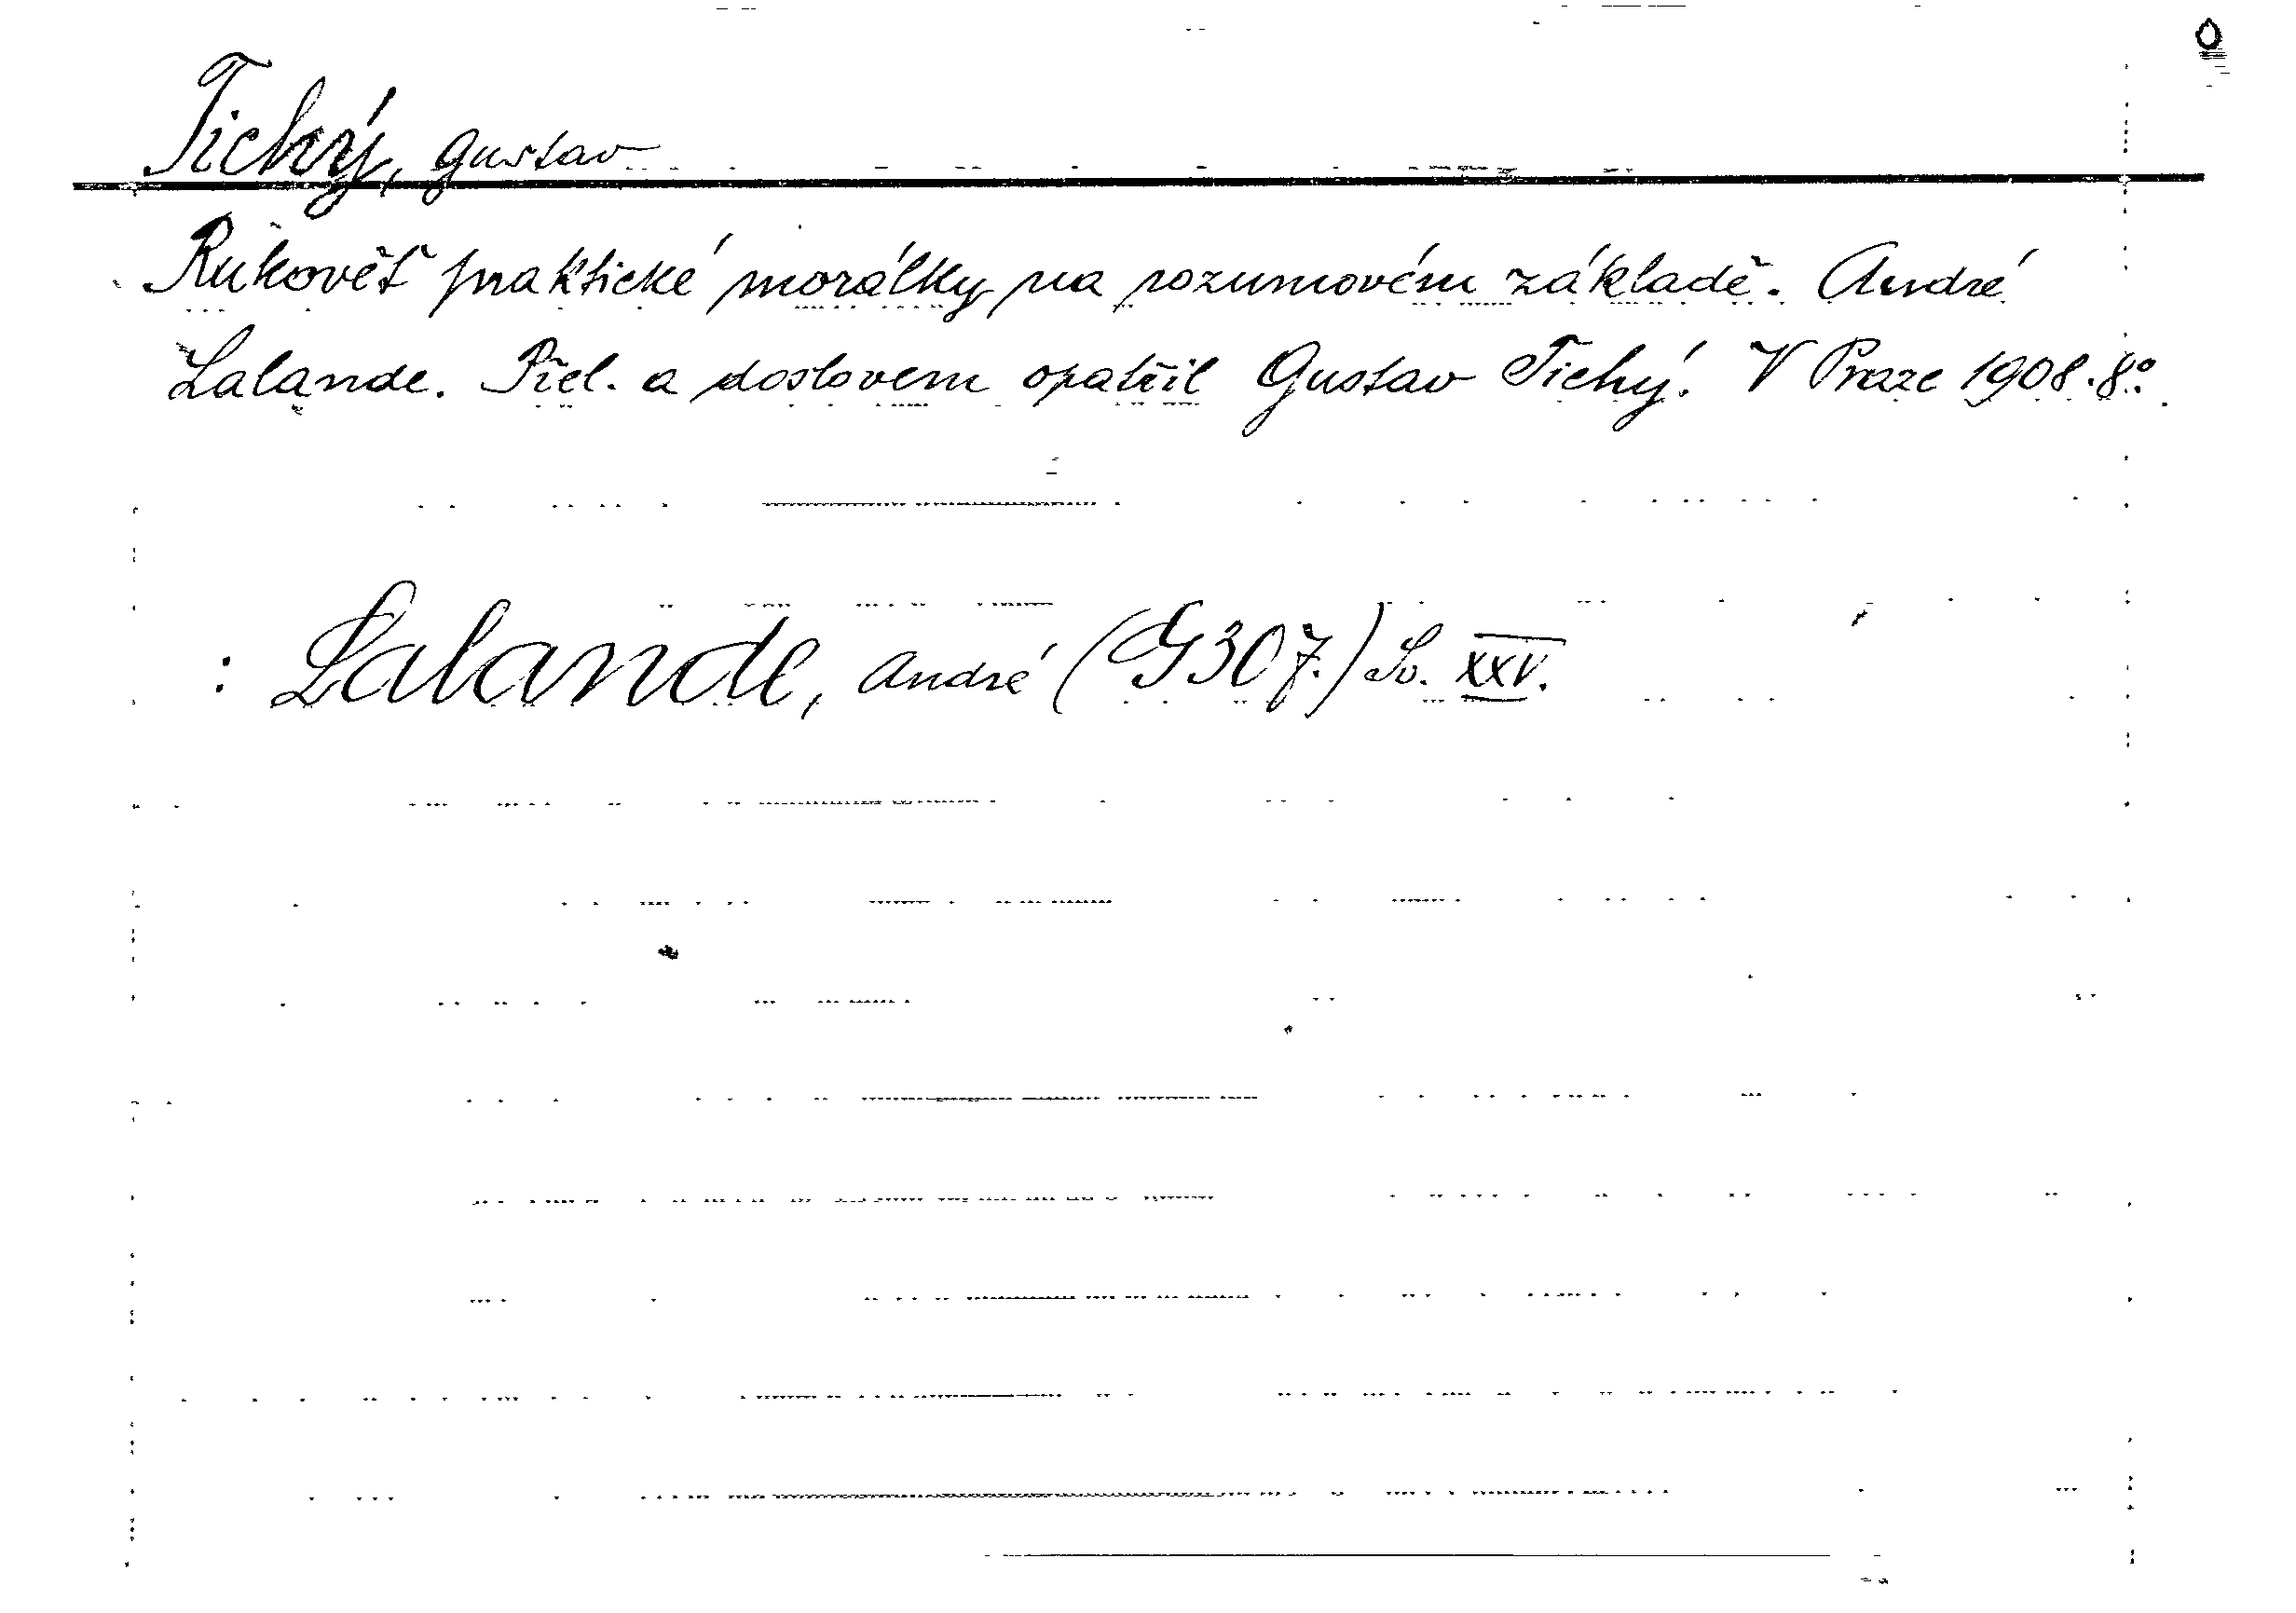 Tichý, Gustav
Rukověť praktické morálky na rozumovém základě. André
Lalande. Přel. a doslovem opatřil Gustav Tichý. V Praze 1908. 8°.
: Lalande, André (G307.) Sv. XXV.